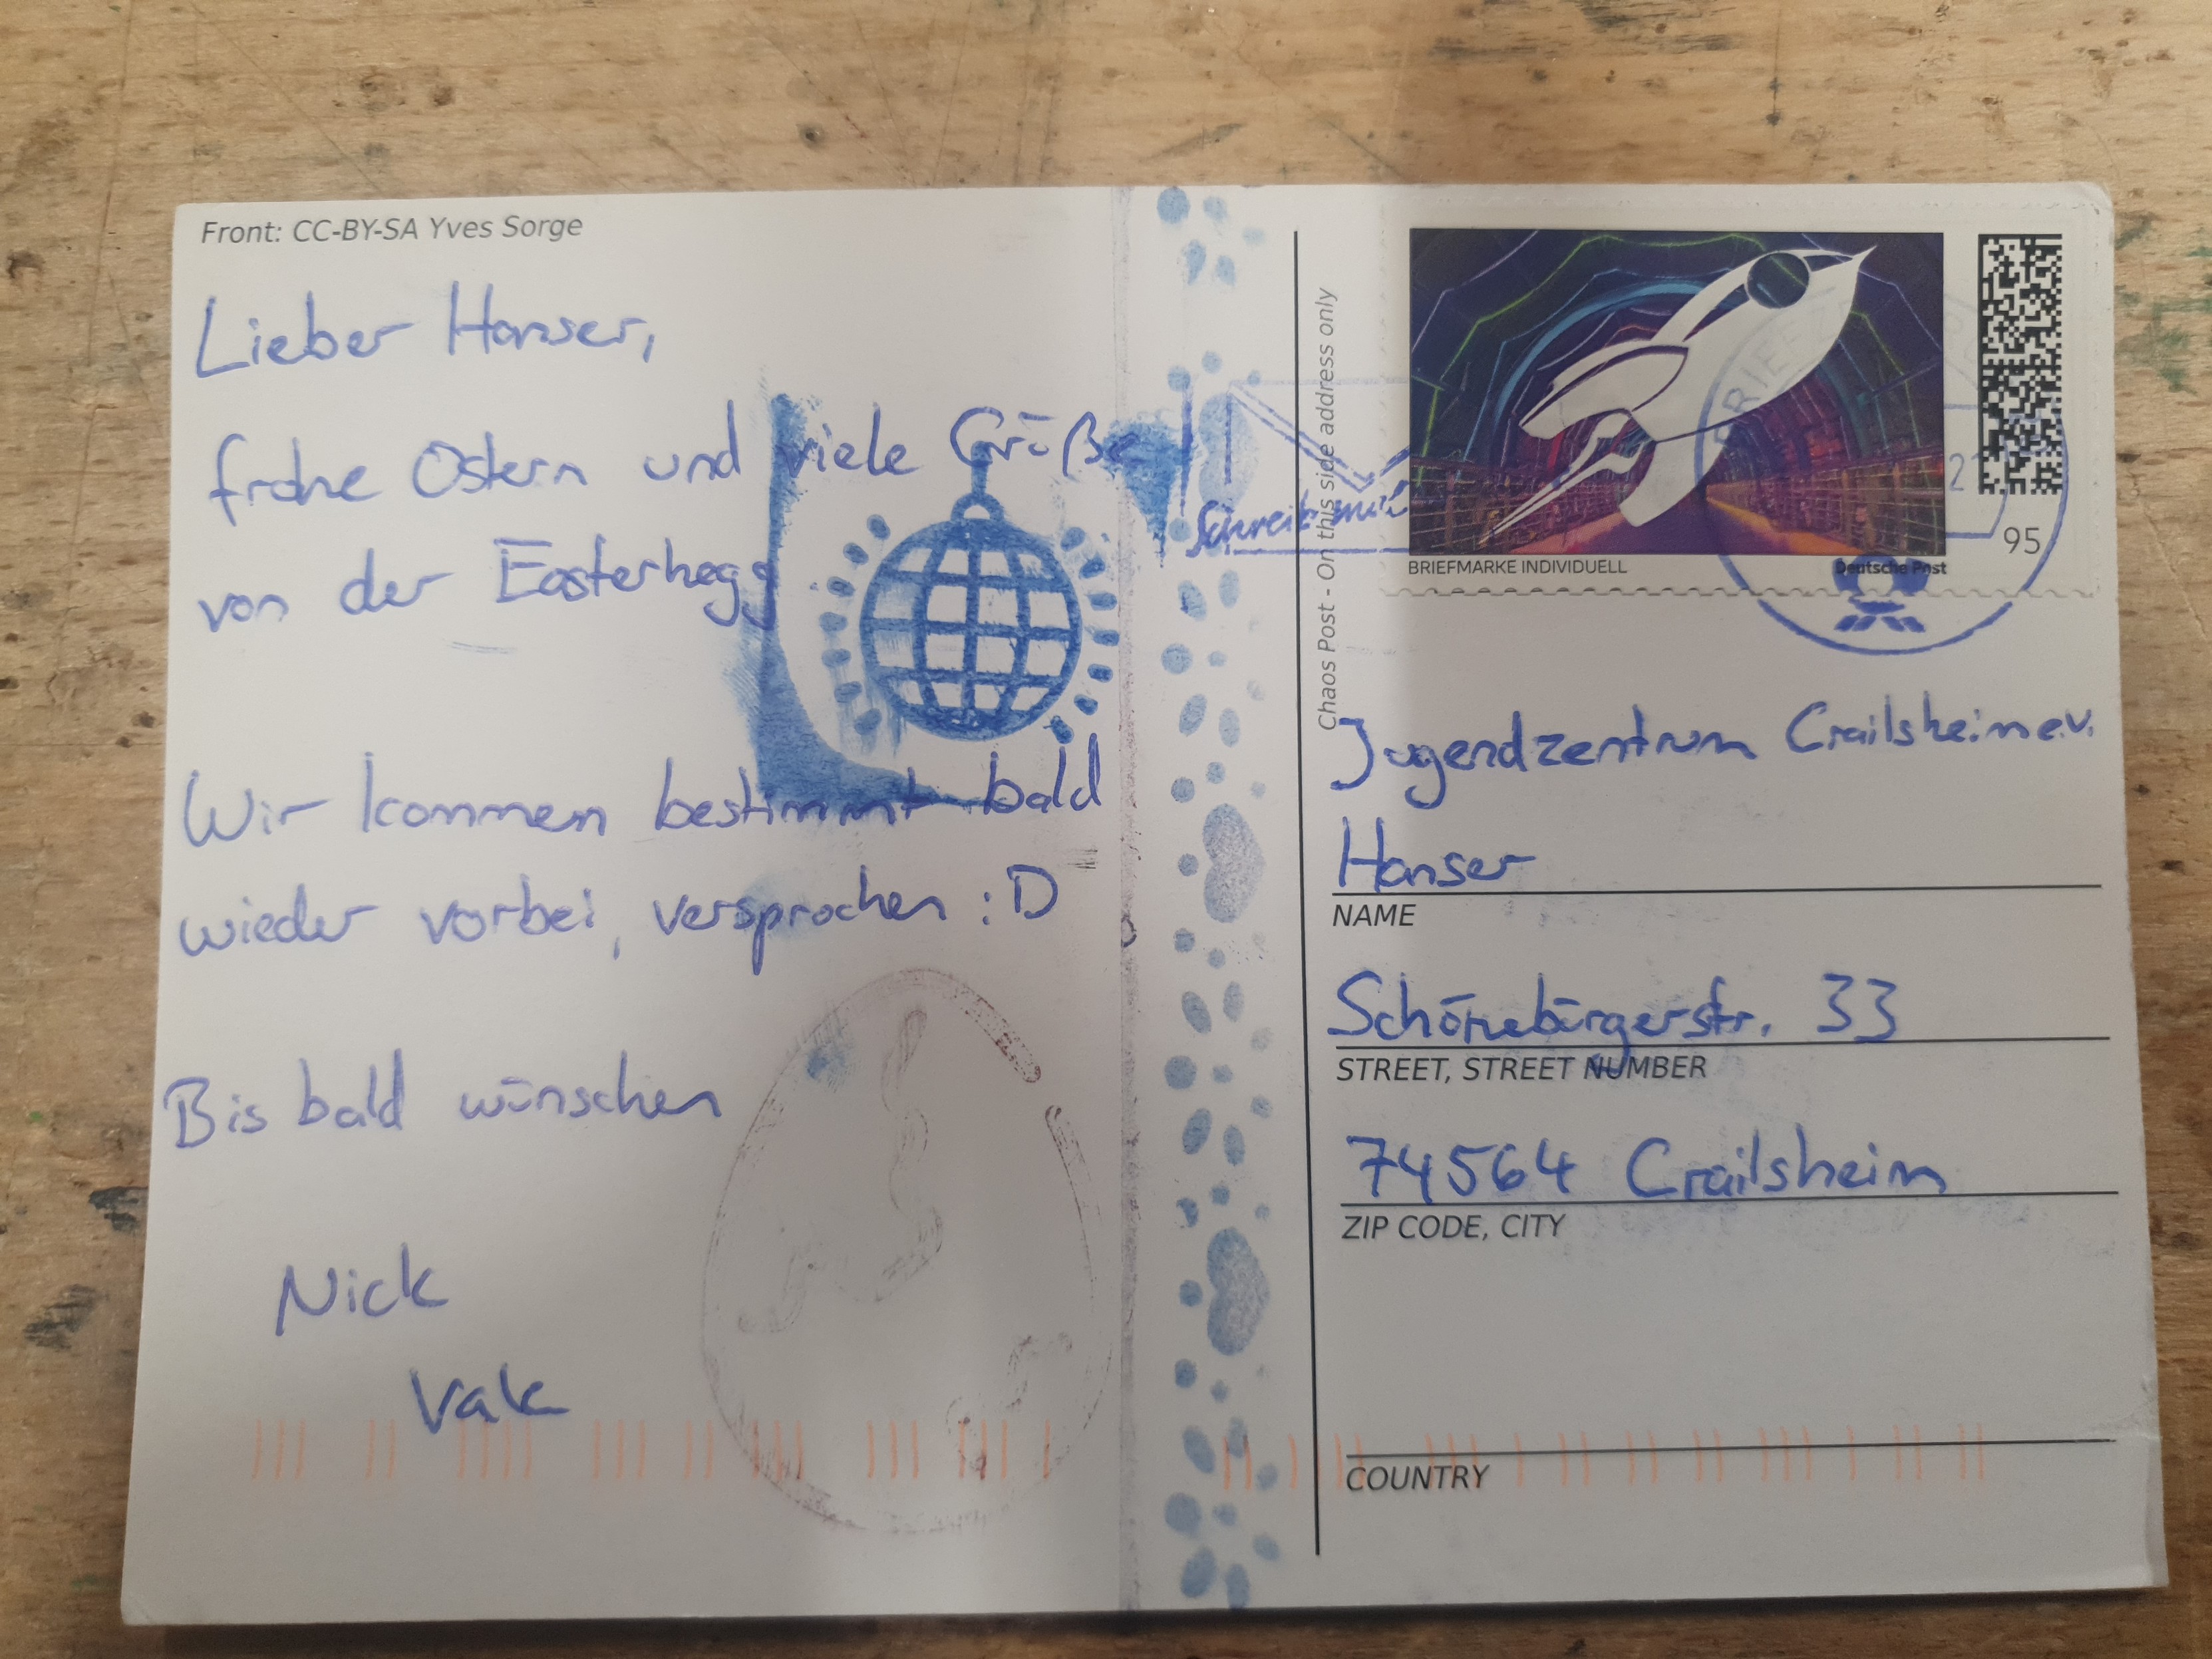 Front: CC-BY-SA Yves Sorge
Lieber Hanser,
frohe Ostern und viele Grüße
von der Easterhegg
Wir kommen bestimmt bald
wieder vorbei, versprochen :D
Bis bald wünschen
Nick
Vale
Chaos Post - On this side address only
Schreib mal
BRIEFMARKE INDIVIDUELL
Deutsche Post
95
Jugendzentrum Crailsheim e.V.
Hanser
NAME
Schönebürgerstr. 33
STREET, STREET NUMBER
74564 Crailsheim
ZIP CODE, CITY
COUNTRY